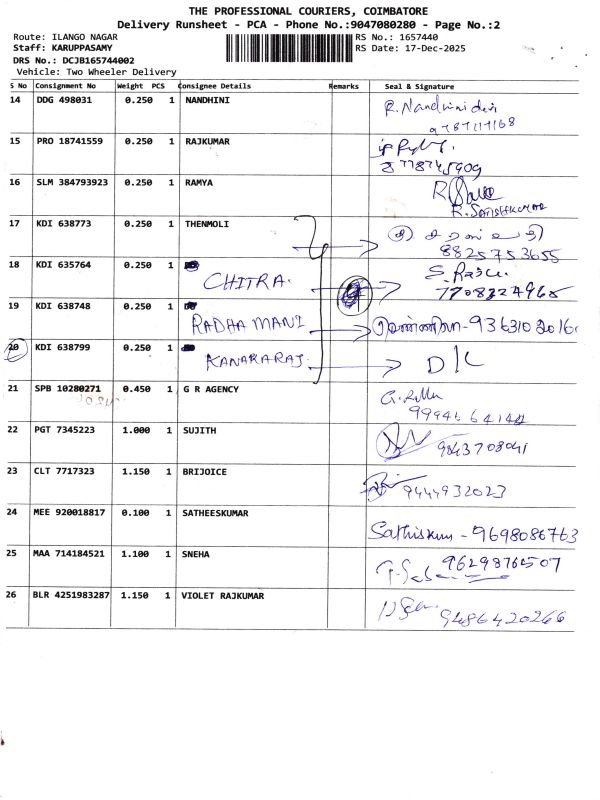 THE PROFESSIONAL COURIERS, COIMBATORE
Delivery Runsheet - PCA - Phone No.:9047080280 - Page No.:2
Route: ILANGO NAGAR RS No.: 1657440
Staff: KARUPPASAMY RS Date: 17-Dec-2025
DRS No.: DCJB165744002
Vehicle: Two Wheeler Delivery
S No Consignment No Weight PCS Consignee Details Remarks Seal & Signature
14 DDG 498031 0.250 1 NANDHINI R. Nandhini devi
9787117168
15 PRO 18741559 0.250 1 RAJKUMAR
8778745909
16 SLM 384793923 0.250 1 RAMYA
R. Sathishkumar
17 KDI 638773 0.250 1 THENMOLI
8825753655
18 KDI 635764 0.250 1 CHITRA. S. Raju
7708324965
19 KDI 638748 0.250 1 RADHA MANI - 9363102016
20 KDI 638799 0.250 1 KANAKARAJ. D/L
21 SPB 10280271 0.450 1 G R AGENCY
9994664144
22 PGT 7345223 1.000 1 SUJITH 9843708041
23 CLT 7717323 1.150 1 BRIJOICE 9444932023
24 MEE 920018817 0.100 1 SATHEESKUMAR Sathiskum - 9698086763
25 MAA 714184521 1.100 1 SNEHA 9629876507
26 BLR 4251983287 1.150 1 VIOLET RAJKUMAR 9486420266